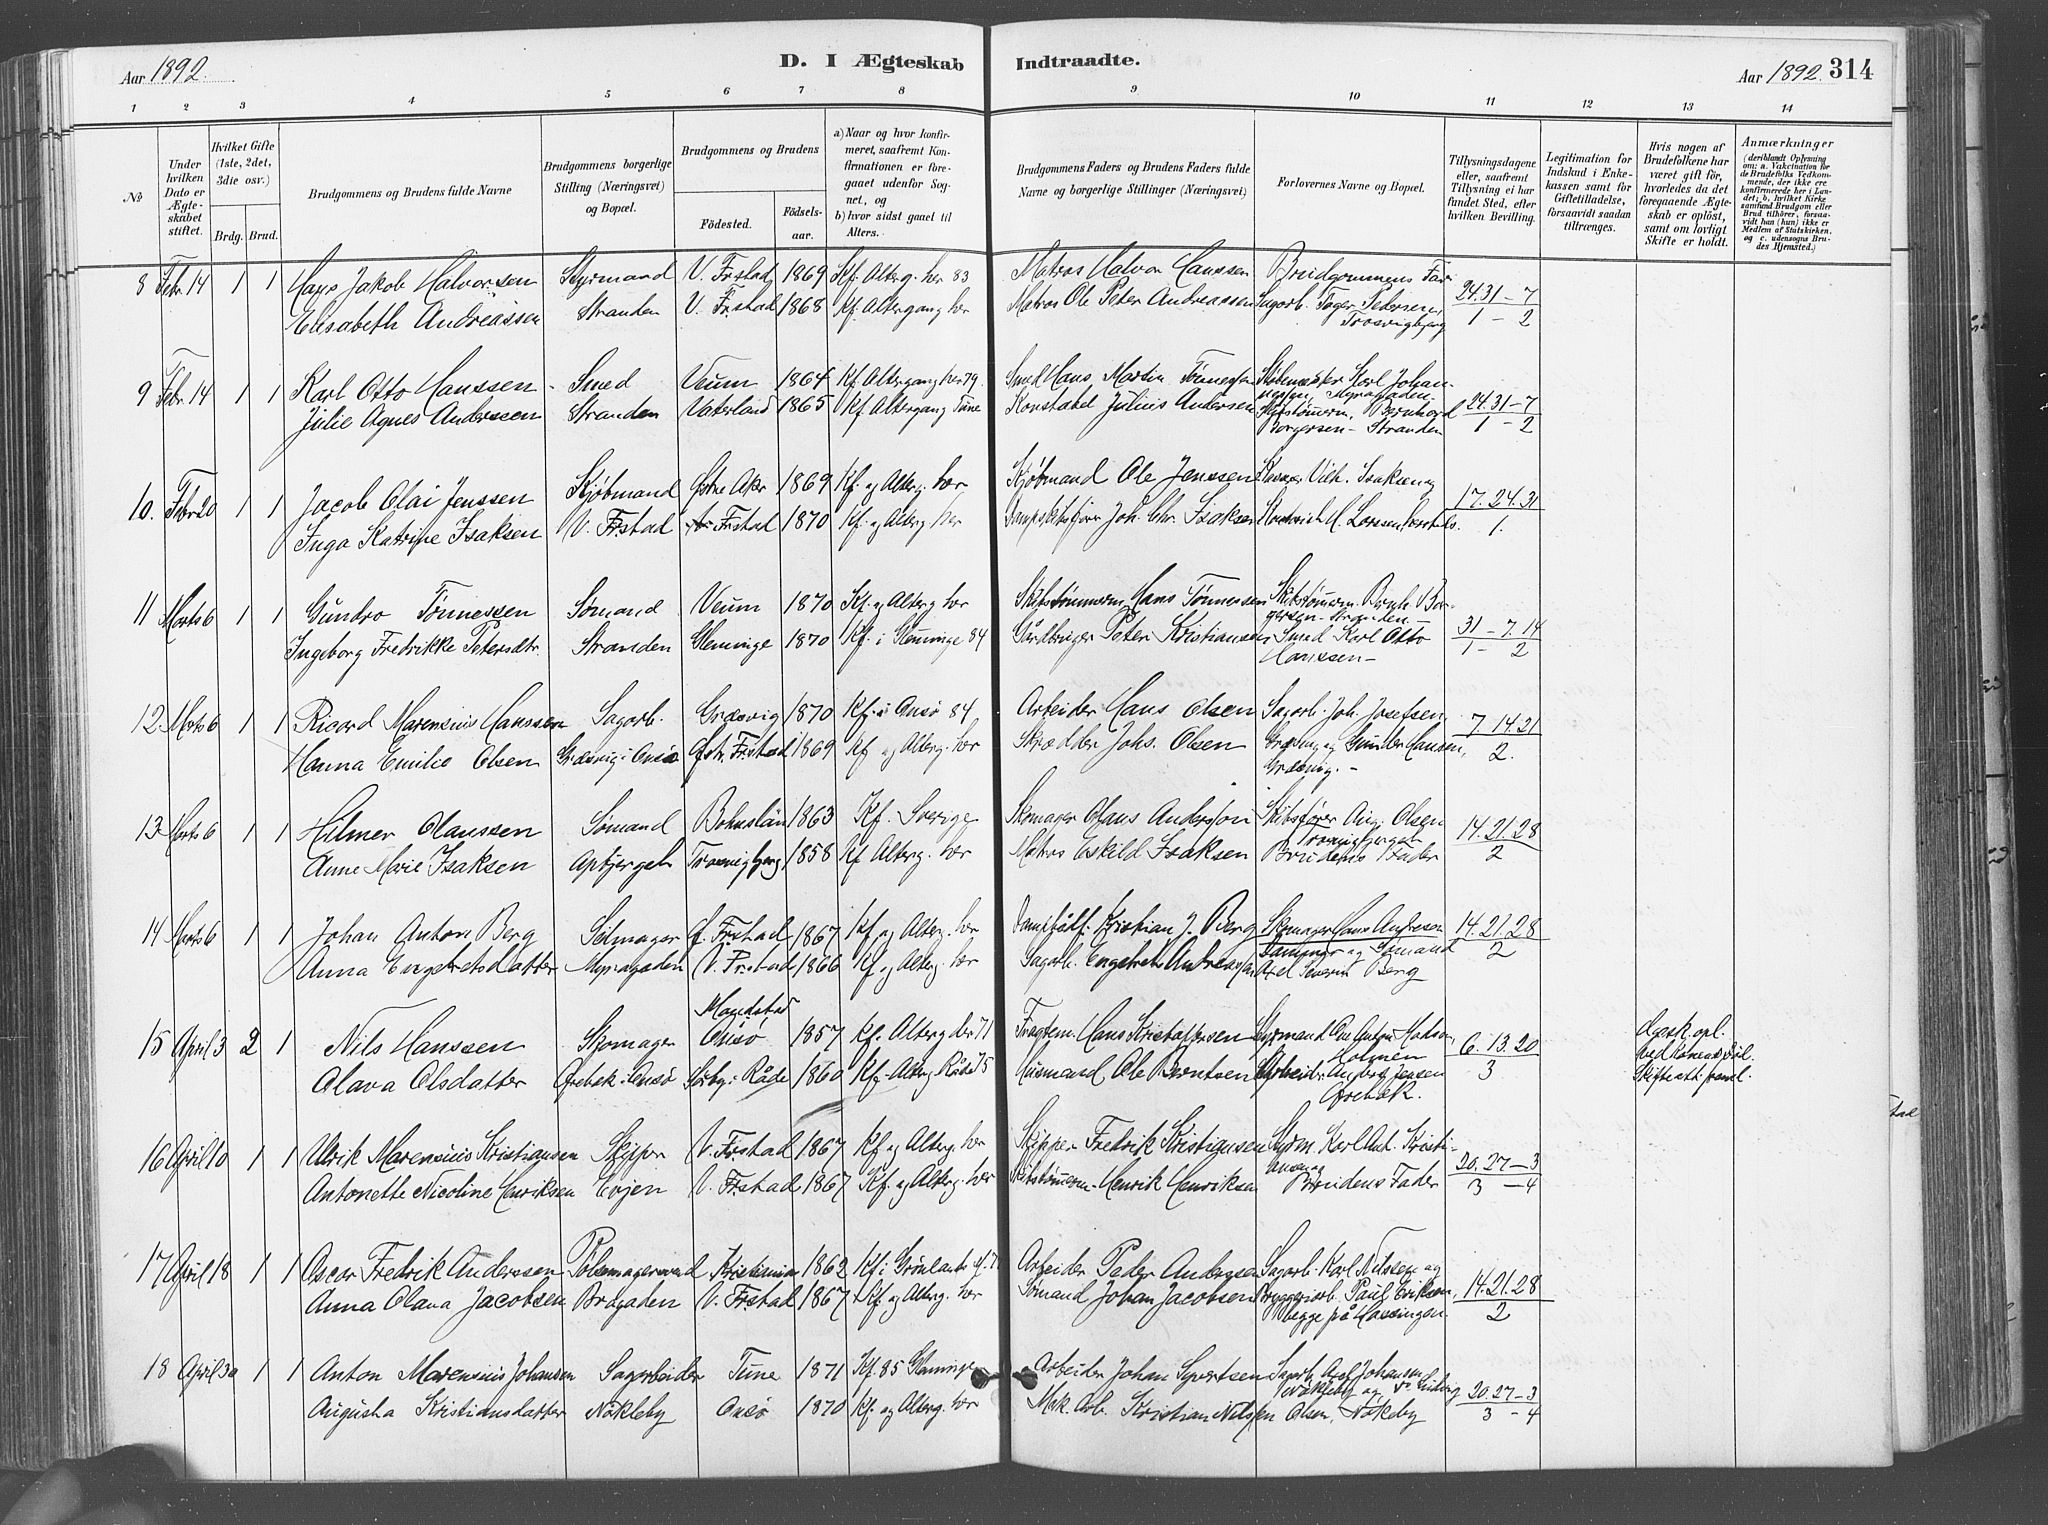 Aar 1892.
D. I Ægteskab Indtraadte.
Aar 1892. 314
1 2 3 4 5 6 7 8 9 10 11 12 13 14
No
Under hvilken Dato er Ægteskabet stiftet.
Hvilket Gifte (1ste, 2det, 3die osv.)
Brdg. Brud.
Brudgommens og Brudens fulde Navne
Brudgommens borgerlige Stilling (Næringsvei) og Bopæl.
Brudgommens og Brudens
Fødested.
Fødselsaar.
a) Naar og hvor konfirmeret, saafremt Konfirmationen er foregaaet udenfor Sognet, og b) hvor sidst gaaet til Alters.
Brudgommens Faders og Brudens Faders fulde Navne og borgerlige Stillinger (Næringsvei)
Forlovernes Navne og Bopæl.
Tillysningsdagene eller, saafremt Tillysning ei har fundet Sted, efter hvilken Bevilling.
Legitimation for Indskud i Enkekassen samt for Giftetilladelse, forsaavidt saadan tiltrænges.
Hvis nogen af Brudefolkene har været gift før, hvorledes da det foregaaende Ægteskab er opløst, samt om lovligt Skifte er holdt.
Anmærkninger (deriblandt Oplysning om: a. Vakcination for de Brudefolks Vedkommende, der ikke ere konfirmerede her i Landet; b. hvilket Kirkesamfund Brudgom eller Brud tilhører, forsaavidt han (hun) ikke er Medlem af Statskirken, og c. udensogns Brudes Hjemsted.)
8 Febr 14 1 1 Hans Jakob Halvorsen Styrmand V. Frstad 1869 Kf. Alterg. her 83 Matros Halvor Hanssen Brudgommens Far 24.31 – 7
Elisabeth Andreassen Stranden V. Frstad 1868 Kf Altergang her Matros Ole Peter Andreassen Sagarb. Pedersen, 1 – 2
Trosvigbjerg
9 Febr 14 1 1 Karl Otto Hanssen Smed Veum 1864 Kf Altergang her 79. Smed Hans Martin Tønnessen Karl Johannessen, Myragaden 24.31 – 7
Julie Agnes Anderssen Stranden Vaterland 1865 Kf Altergang Tune Konstabel Julius Andersen Skibstømm. Bernhard 1 – 2
Borgersen – Stranden
10. Febr 20 1 1 Jacob Olai Jenssen Kjøbmand Østre Aker 1869 Kf. og Alterg. her Kjøbmand Ole Jenssen Vilh. Isaksen og 17.24.31
Inga Katrine Isaksen V. Frstad Frstad 1870 Kf. og Alterg her Dampskibsfører Joh. Chr. Isaksen 1.
11 Marts 6 1 1 Gundro Tønnessen Sømand Veum 1870 Kf. og Alterg her Skibstømmerm Hans Tønnessen Skibstømm. Bernh. Borgersen – Stranden – 31 – 7.14
Ingeborg Fredrikke Petersdtr. Stranden Glemminge 1870 Kf. i Glemminge 84 Gårdbruger Peter Kristiansen Smed Karl Otto 1 – 2
Hanssen –
12 Marts 6 1 1 Ricard Marensius Hanssen Sagarb. Græsvig 1870 Kf. i Onsø 84 Arbeider Hans Olsen Sagarb. Joh. Josefsen 7.14.21
Hanna Emilie Olsen Græsvig i Onsø Østr. Frstad 1869 Kf og Alterg. her Skrædder Johs. Olsen Græsvig og Gunder Hansen, 2.
Græsvig. –
13 Marts 6 1 1 Hilmer Olaussen Sømand Bohuslän 1863 Kf. Sverige Skomager Olaus Andersson Skibsfører Aug. Olsen 14.21.28
Anne Marie Isaksen Apbjerget Trosvigbjerg 1858 Kf Alterg. her Matros Eskild Isaksen Trosvigbjerget Brudens Fader 2
14 Marts 6 1 1 Johan Anton Berg Seilmager Ø. Frstad 1867 Kf og Alterg. her Kristian J. Berg Skomager Hans Andresen 14.21.28
Anna Engebretsdatter Myragaden V. Frstad 1866 Kf og Alterg. her Sagarb. Engebret Andreassen og Sømand 2
Axel Severin Berg
15 April 3 2 1 Nils Hanssen Skomager Onsø 1857 Kf. Alterg der 71 Fragtem. Hans Kristoffersen Styrmand Ole Anton 6.13.20
Holmen
Olava Olsdatter Ørebek i Onsø Råde 1860 Kf. Alterg Råde 75 Husmand Ole Berntsen Arbeider Jensen 3
Ørebæk.
Ægsk. opl.
ved Konens Død.
16 April 10 1 1 Ulrik Marensius Kristiansen Skipper V. Frstad 1867 Kf og Alterg. her Skipper Fredrik Kristiansen Styrm. Karl Ant. Kristiansen og 20.27 – 3
Antonette Nicoline Henriksen Evjen V. Frstad 1867 Kf. og Alterg. her Skibstømmerm. Henrik Henriksen Brudens Fader 3 – 4
17 April 18 1 1 Oscar Fredrik Anderssen Pølsemagersvend Kristiania 1862 Kf i Grønland Arbeider Peder Anderssen Sagarb. Karl Nilssen og 14.21.28
Anna Olava Jacobsen Brogaden V. Frstad 1867 Kf. og Alterg. her Sømand Johan Jacobsen Bryggeriarb. Paul Eriksen, 2
begge på Hassingen.
18 April 30 1 1 Anton Marensius Johansen Sagarbeider Tune 1871 Kf. 85 Glemminge Arbeider Johan Syvertsen Sagarb. Axel Johansen 20.27 – 3
Augusta Kristiansdatter Nøkleby Onsø 1870 Kf. og Alterg. her Kristian Nilssen Nøkleby og Ludvig Olsen, Nøkleby 3 – 4